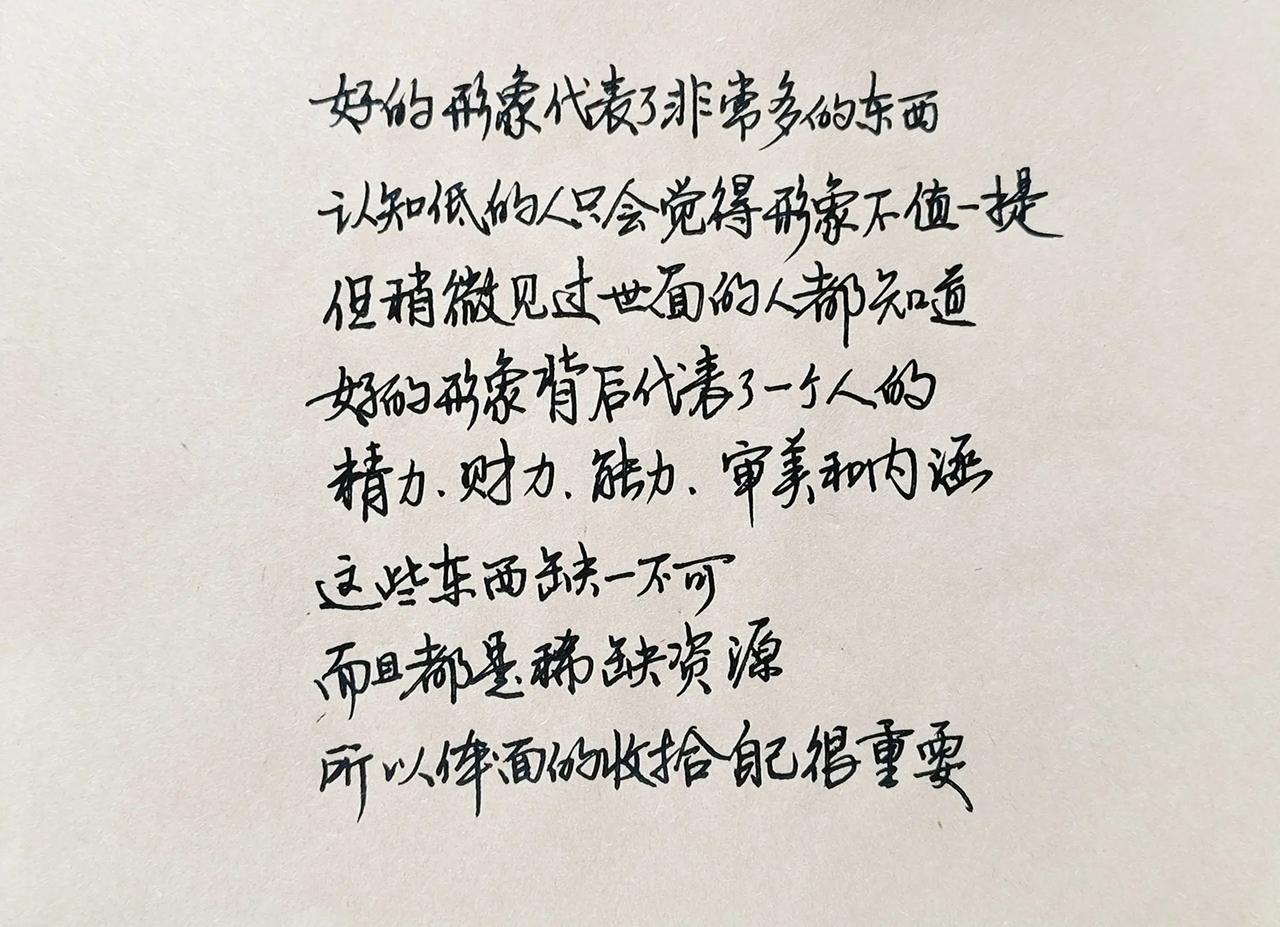 好的形象代表了非常多的东西
认知低的人只会觉得形象不值一提
但稍微见过世面的人都知道
好的形象背后代表了一个人的
精力、财力、能力、审美和内涵
这些东西缺一不可
而且都是稀缺资源
所以体面的收拾自己很重要